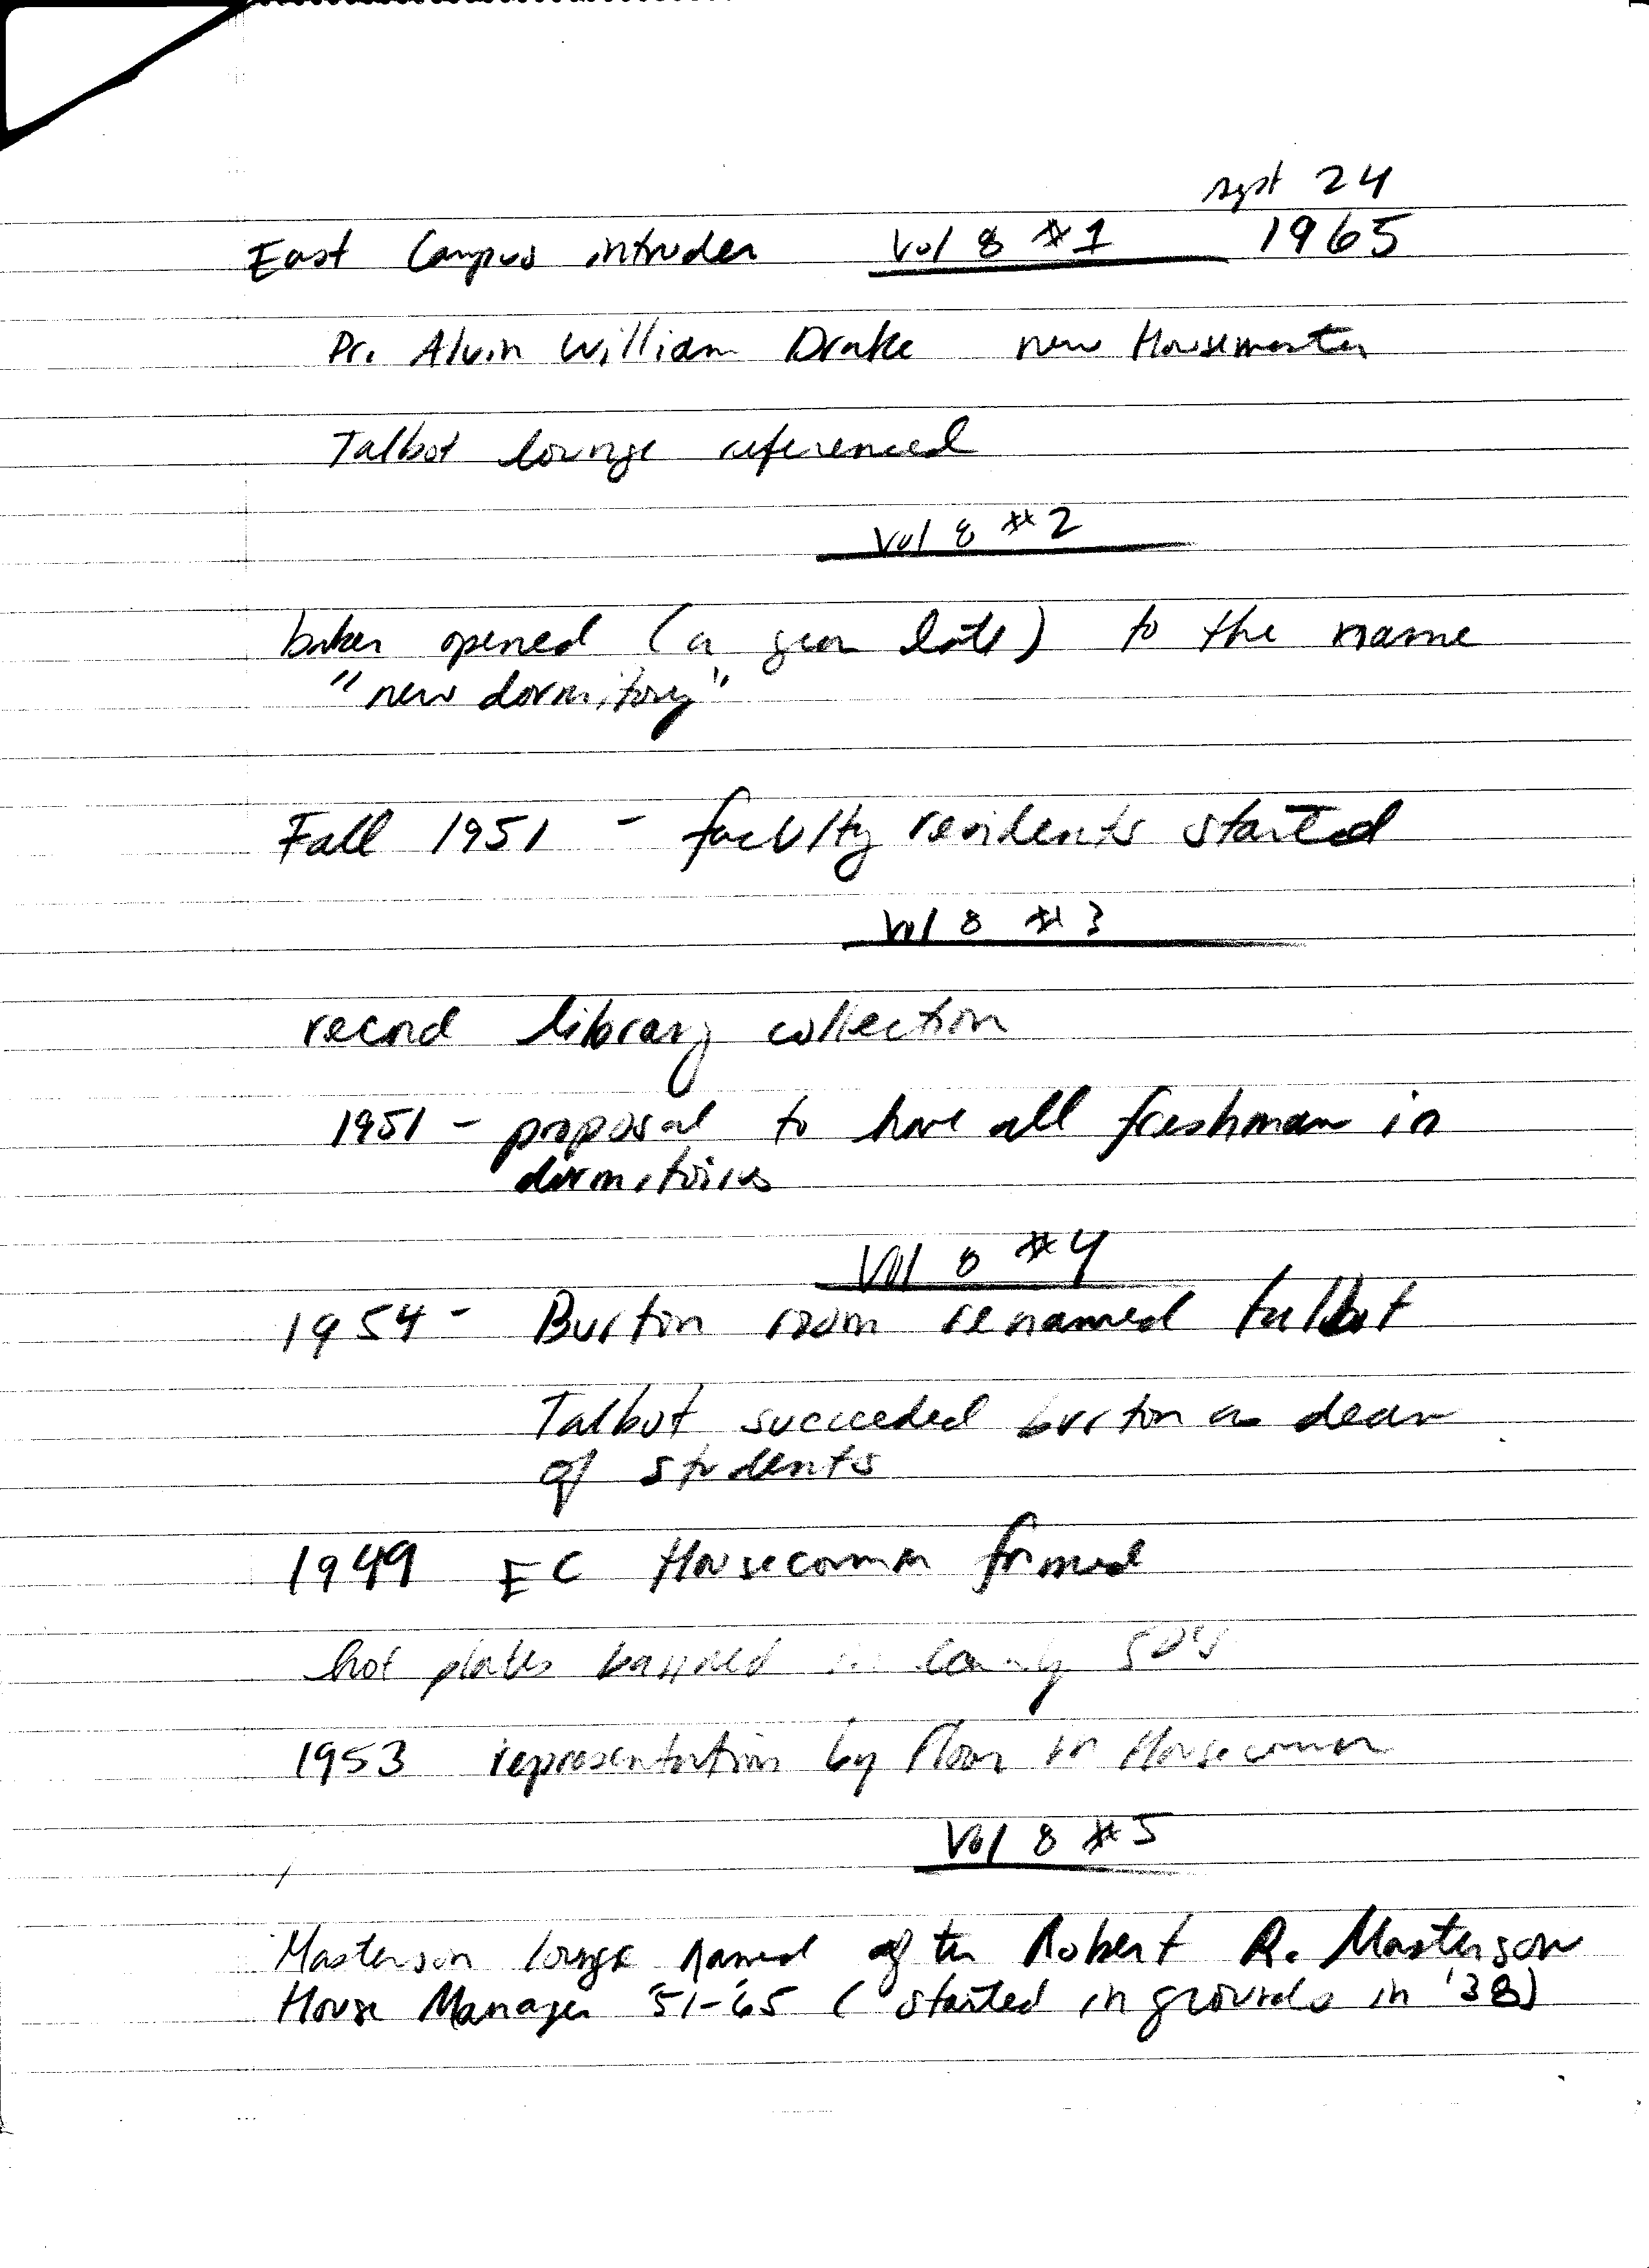 sept 24
East Campus intruder Vol 8 #1 1965
Dr. Alvin William Drake new Housemaster
Talbot lounge referenced
Vol 8 #2
baker opened (a year late) to the name
"new dormitory"
Fall 1951 - faculty residents started
Vol 8 #3
record library collection
1951 - proposal to have all freshman in
dormitories
Vol 8 #4
1954 - Burton room renamed talbot
Talbot succeeded burton as dean
of students
1949 EC Housecomm formed
hot plates banned in early 50's
1953 representation by floor in Housecomm
Vol 8 #5
Masterson lounge named after Robert R. Masterson
House Manager '51-'65 (started in grounds in '38)